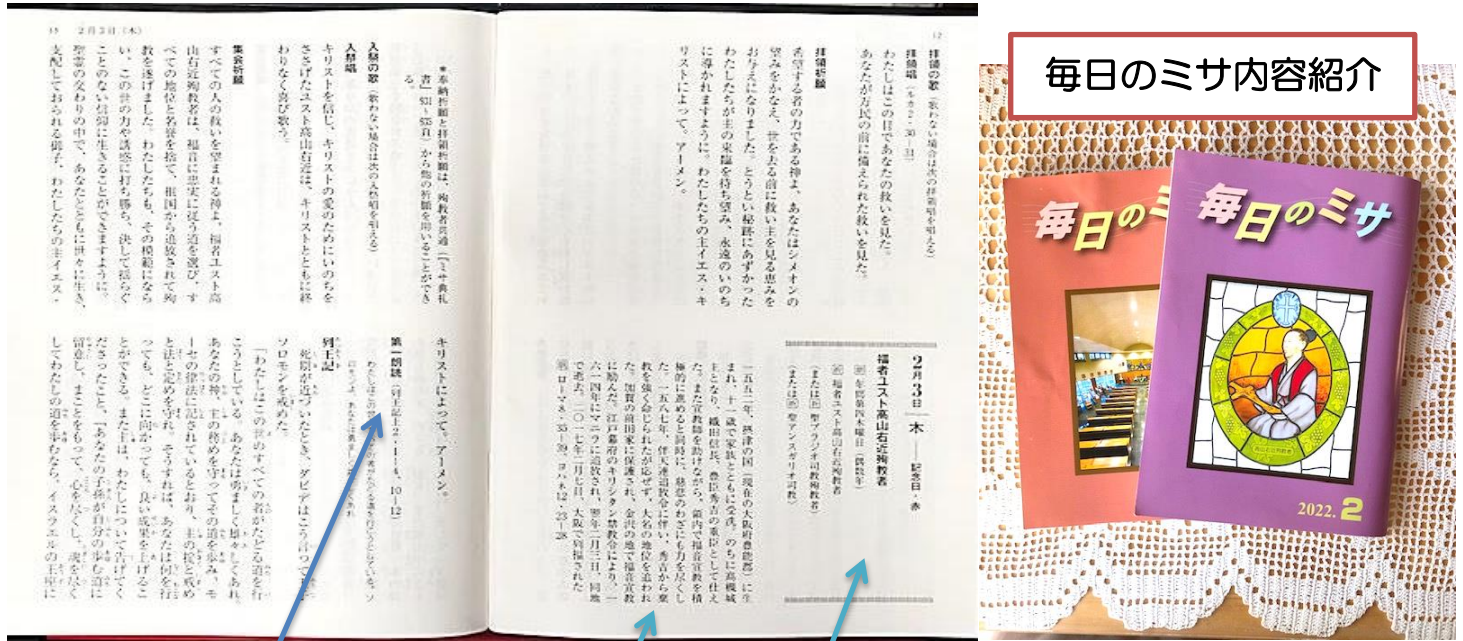 12
拝領の歌（歌わない場合は次の拝領唱を唱える）
拝領唱（ルカ2・30—31）
わたしはこの目であなたの救いを見た。
あなたが万民の前に備えられた救いを見た。
拝領祈願
希望する者の力である神よ、あなたはシメオンの
望みをかなえ、世を去る前に救い主を見る恵みを
お与えになりました。とうとい秘跡にあずかった
わたしたちが主の来臨を待ち望み、永遠のいのち
に導かれますように。わたしたちの主イエス・キ
リストによって。アーメン。
2月3日 木 —— 記念日・赤
福者ユスト高山右近殉教者
年間第四木曜日（偶数年）
福者ユスト高山右近殉教者
（または 聖ブラジオ司教殉教者）
（または 聖アンスガリオ司教）
一五五二年、摂津の国（現在の大阪府豊能郡）に生
まれ、十一歳で家族とともに受洗。のちに高槻城
主となり、織田信長、豊臣秀吉の重臣として仕え
た。また宣教師を助けながら、領内で福音宣教を積
極的に進めると同時に、慈悲のわざにも力を尽くし
た。一五八七年、伴天連追放令に伴い、秀吉から棄
教を強く命じられたが応ぜず、大名の地位を追われ
た。加賀の前田家に保護され、金沢の地で福音宣教
に励んだ。江戸幕府のキリシタン禁教令により、一
六一四年にマニラに追放され、翌年二月三日、同地
で逝去。二〇一七年二月七日、大阪で列福された
ローマ8・35—39、ヨハネ12・23—28
13 2月3日（木）
＊奉納祈願と拝領祈願は、殉教者共通（『ミサ典礼
書』931〜935頁）から他の祈願を用いることができ
る。
入祭の歌（歌わない場合は次の入祭唱を唱える）
入祭唱
キリストを信じ、キリストの愛のためにいのちを
ささげたユスト高山右近は、キリストとともに終
わりなく喜び歌う。
集会祈願
すべての人の救いを望まれる神よ、福者ユスト高
山右近殉教者は、福音に忠実に従う道を選び、す
べての地位と名誉を捨て、祖国から追放されて殉
教を遂げました。わたしたちも、その模範になら
い、この世の力や誘惑に打ち勝ち、決して揺らぐ
ことのない信仰に生きることができますように。
聖霊の交わりの中で、あなたとともに世々に生き、
支配しておられる御子、わたしたちの主イエス・
キリストによって。アーメン。
第一朗読（列王記上2・1—4、10—12）
列王記
死期が近づいたとき、ダビデは
ソロモンを戒めた。
「わたしはこの世のすべての者がたどる道を行
こうとしている。あなたは勇ましく雄々しくあれ。
あなたの神、主の務めを守ってその道を歩み、モ
ーセの律法に記されているとおり、主の掟と戒め
と法と定めを守れ。そうすれば、あなたは何を行
っても、どこに向かっても、良い成果を上げるこ
とができる。また主は、わたしについて告げてく
ださったこと、『あなたの子孫が自分の歩む道に
留意し、まことをもって、心を尽くし、魂を尽く
してわたしの道を歩むなら、イスラエルの王座に
毎日のミサ内容紹介
毎日のミ
毎日のミサ
2022. 2